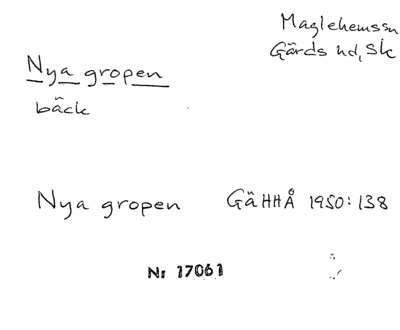 Maglehemssn
Gärds hd, Sk
Nya gropen
bäck
Nya gropen GäHHÅ 1950:138
Nr 17061